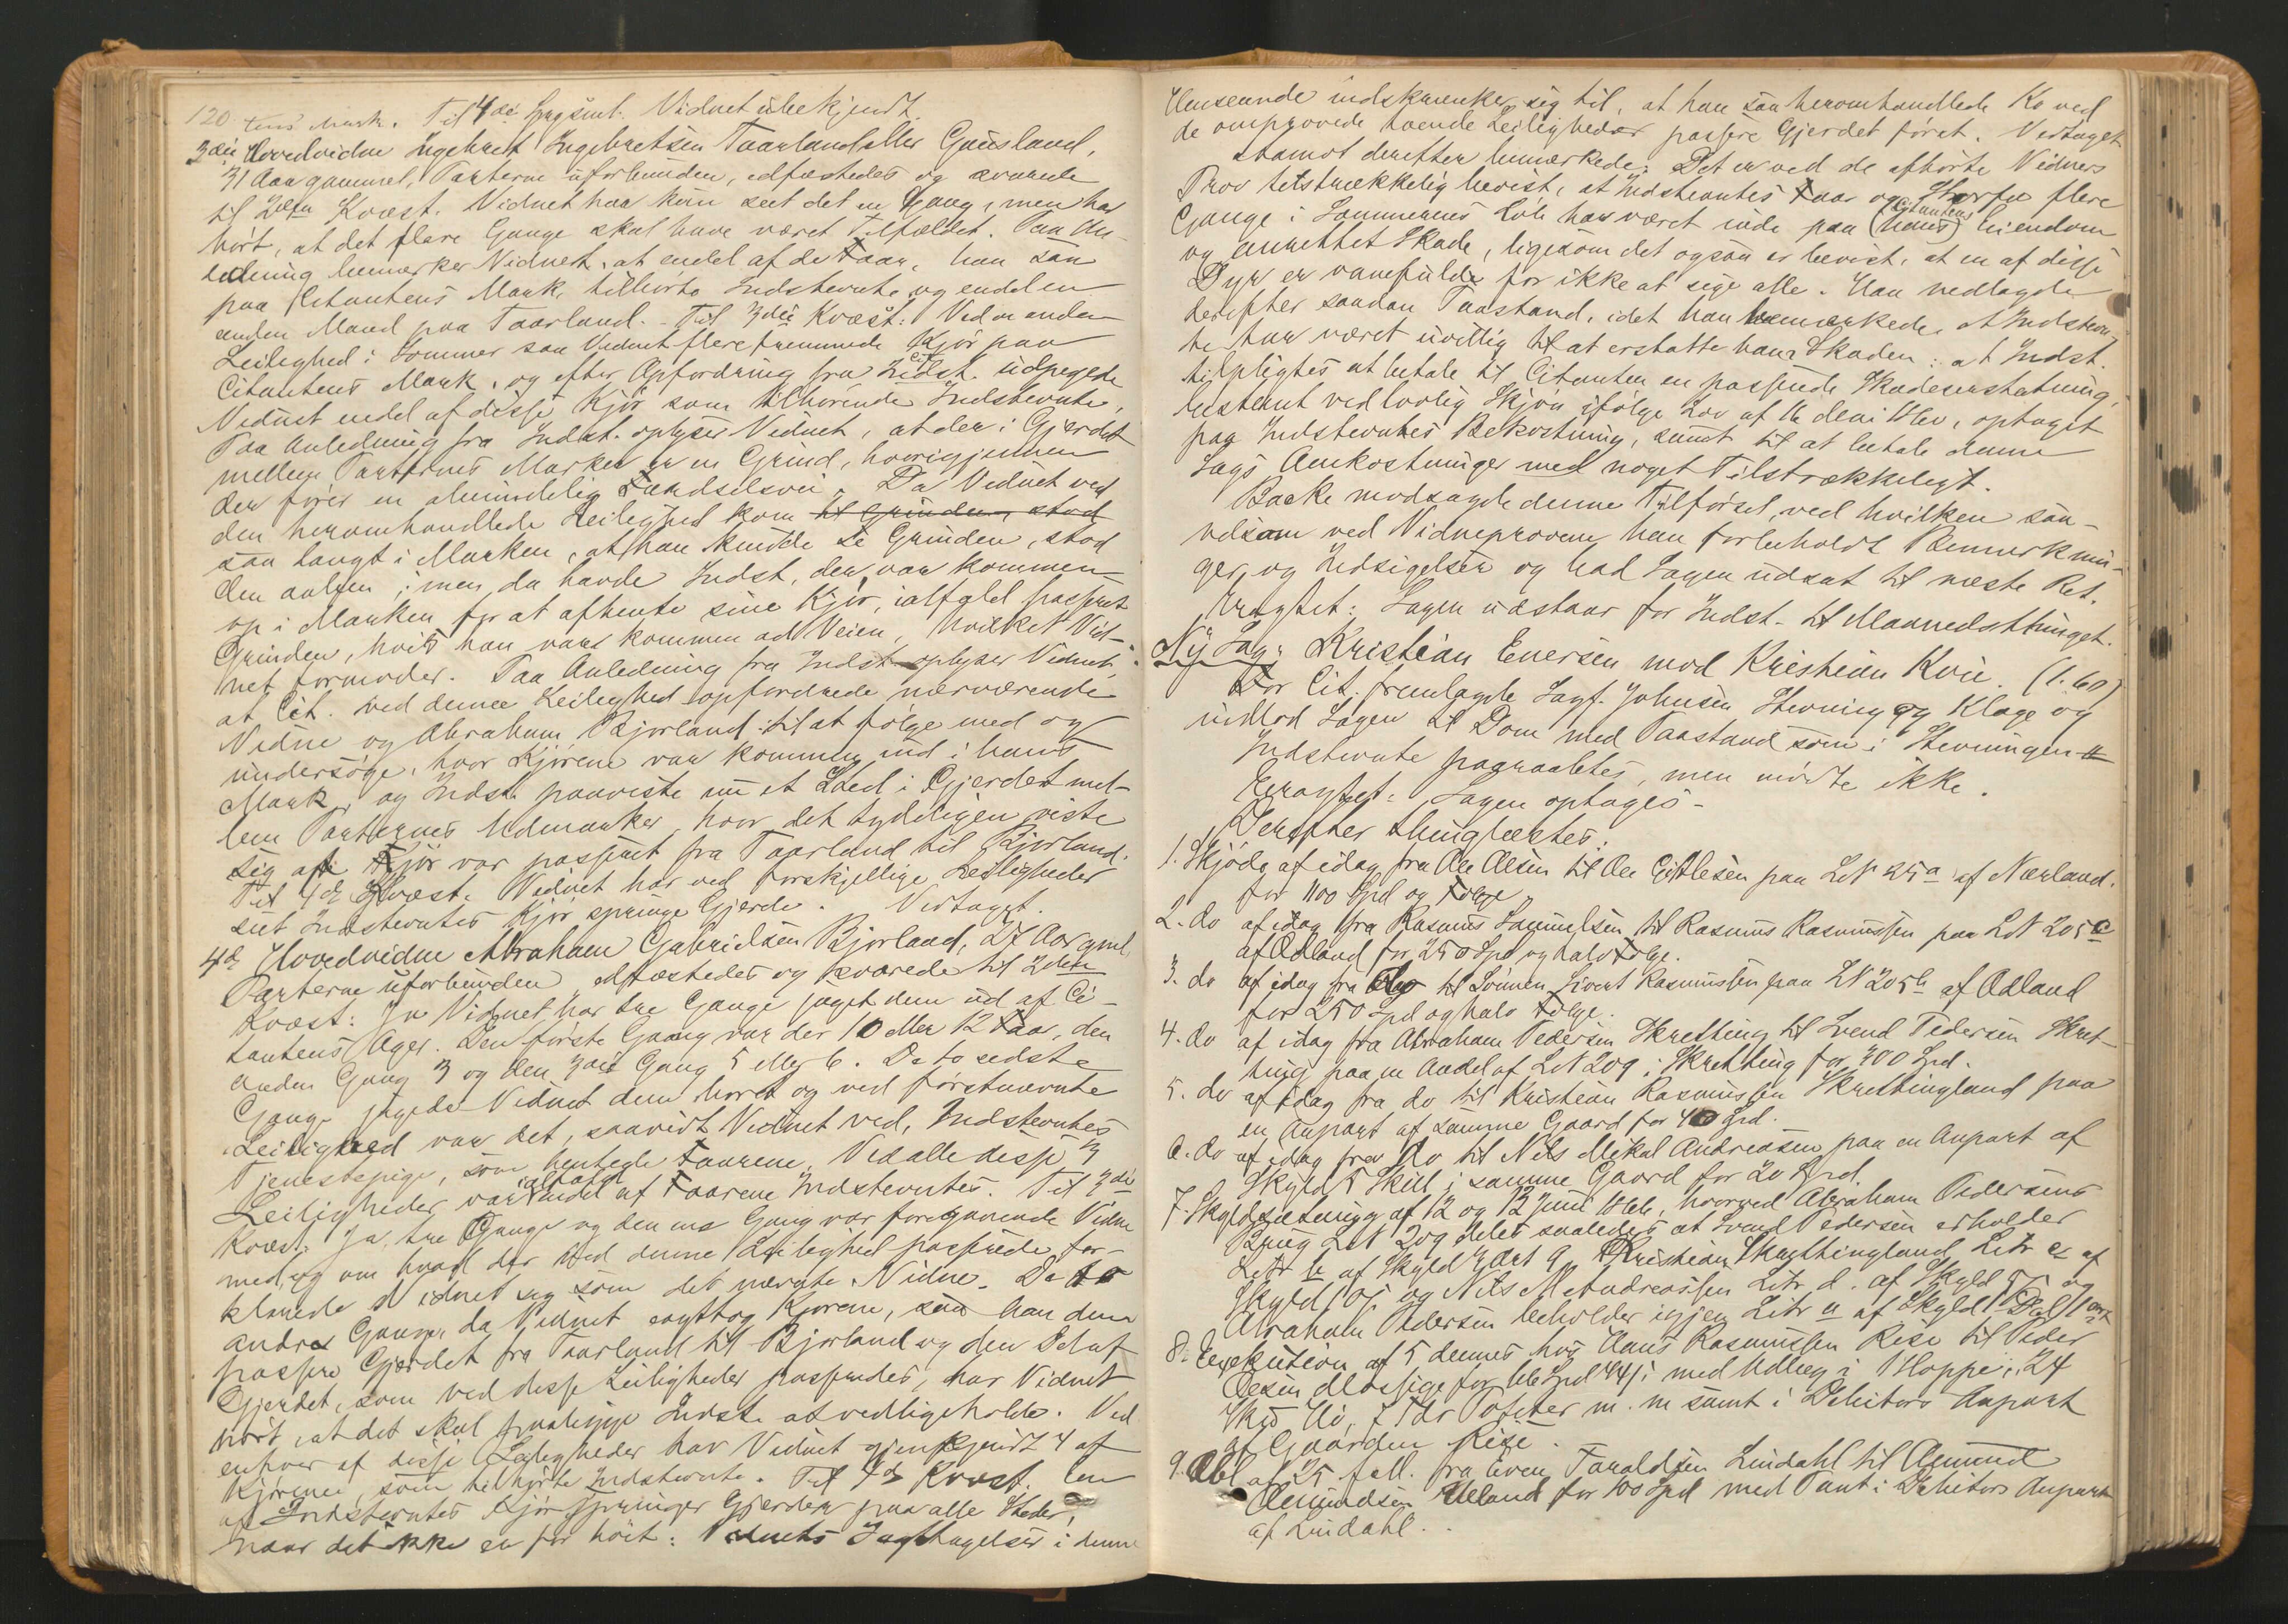 120.
tens Mark. Til 4de Spsml. Vidnet ubekjendt.
3die Hovedvidne Ingebret Ingebretsen Taarland eller Gausland,
31 Aar gammel, Parterne uforbunden, edfæstedes og svarede
til 2det Kvæst. Vidnet har kun seet det en Gang, men har
hørt, at det flere Gange skal have været Tilfældet. Paa An-
ledning bemærker Vidnet, at endel af de Faar, han saa
paa Citantens Mark, tilhørte Indstevnte og endel en
anden Mand paa Taarland. Til 3die Kvæst: Ved en anden
Leilighed i Sommer saa Vidnet flere fremmede Kjør paa
Citantens Mark, og efter Opfordring fra Cit. udpegede
Vidnet endel af disse Kjør som tilhørende Indstevnte.
Paa Anledning fra Indst. oplyser Vidnet, at der i Gjerdet
mellem Parternes Marker er en Grind, hvorigjennem
der fører en almindelig Færdselsvei. Da Vidnet ved
den heromhandlede Leilighed kom til Grinden, stod
saa langt i Marken, at han kunde se Grinden, stod
den aaben; men da havde Indst. der var kommen
op i Marken for at afhente sine Kjør, ialfald passeret
Grinden, hvis han var kommen ad Veien, hvilket Vid-
net formoder. Paa Anledning fra Indst. oplyser Vidnet,
at Cit. ved denne Leilighed opfordrede nærværende
Vidne og Abraham Bjorland til at følge med og
undersøge, hvor Kjørene var kommen ind i hans
Mark, og Indst. paaviste nu et Sted i Gjerdet mel-
lem Parternes Udmarker, hvor det tydeligen viste
sig at Kjør var passeret fra Taarland til Bjorland.
Til 4de Kvæst. Vidnet har ved forskjellige Leiligheder
seet Indstevntes Kjør springe Gjerde. Vedtaget.
4de Hovedvidne Abraham Gabrielsen Bjorland, 27 Aar gml,
Parterne uforbunden, edfæstedes og svarede til 2det
Kvæst: Ja Vidnet har tre Gange jaget dem ud af Ci-
tantens Ager. Den første Gang var der 10 eller 12 Faar, den
anden Gang 3 og den 3die Gang 5 eller 6. De to sidste
Gange jagede Vidnet dem bort og ved førstnævnte
Leilighed var det, saavidt Vidnet ved, Indstevntes
Tjenestepige, som hentede Faarene. Ved alle disse 3
Leiligheder var ialfald endel af Faarene Indstevntes. Til 3die
Kvæst. Ja, tre Gange og den ene Gang var foregaaende Vidne
med, og om hvad der ved denne Leilighed passerede for-
klarede Vidnet sig som det nævnte Vidne. De to
andre Gange, da Vidnet Kjørene, saa han dem
passere Gjerdet fra Taarland til Bjorland og den Del af
Gjerdet, som ved disse Leiligheder passeredes, har Vidnet
hørt, at det skal paaligge Indst. at vedligeholde. Ved
enhver af disse Leiligheder har Vidnet gjenkjendt 4 af
Kjørene, som tilhørte Indstevnte. Til 4de Kvæst.
at Indstevntes Kjør springer Gjerder paa alle Steder,
naar det ikke er for høit. Vidnets Iagttagelser i denne
Henseende indskrænker sig til, at han saa heromhandlede Ko ved
de omprovede tvende Leiligheder passere Gjerdet først. Vedtaget.
Stamst derefter bemærkede: Det er ved de afhørte Vidners
Prov tilstrækkelig bevist, at Indstevntes Faar og Storfæ flere
Gange i Sommerens Løb har været inde paa (hans) Citantens Eiendom
og anrettet Skade, ligesom det ogsaa er bevist, at en af disse
Dyr er vanefulde for ikke at sige alle. Han nedlagde
derefter saadan Paastand, idet han bemærkede, at Indstevn-
te har været uvillig til at erstatte ham Skaden: at Indst.
tilpligtes at betale til Citanten en passende Skadeserstatning,
bestemt ved lovlig Skjøn ifølge Lov af 16 deni 1860, optaget
paa Indstevntes Bekostning, samt til at betale denne
Sags Omkostninger med noget Tilstrækkeligt.
Backe modsagde denne Tilførsel, ved hvilken saa-
velsom ved Vidneprovene han forbeholdt Bemærknin-
ger og Indsigelser og bad Sagen udsat til næste Ret.
Eragtet: Sagen udstaar for Indst. til Maanedsthinget.
Ny Sag: Kristian Enersen mod Kristian Kvie. (1.60)
For Cit. fremlagde Sagf. Johnsen Stevning og Klage og
indlod Sagen til Dom med Paastand som i Stevningen
Indstevnte paaraabtes, men mødte ikke.
Eragtet: Sagen optages.
Derefter thinglæstes:
1. Skjøde af idag fra Ole Olsen til Ole Gitlesen paa LN 25a af Nærland.
for 1100 Spd og Følge.
2. do af idag fra Rasmus Samuelsen til Rasmus Rasmussen paa LN 205c
af Odland for 250 Spd og halv Følge.
3. do af idag fra do til Sønnen Sivert Rasmussen paa LN 205b af Odland
for 250 Spd og halv Følge.
4. do af idag fra Abraham Pedersen Skretting til Svend Pedersen Skret-
ting paa en Andel af LN 209 i Skretting for 400 Spd.
5. do af idag fra do til Kristian Rasmussen Skrettingland paa
en Anpart af samme Gaard for 40 Spd.
6. do af idag fra do til Nils Mikal Andreasen paa en Anpart af
Skyld 5 Skill i samme Gaard for 20 Spd.
7. Skyldsætning af 12 og 13 Juni 1866, hvorved Abraham Pedersens
Brug LN 209 deles saaledes at Svend Pedersen erholder
Litr b af Skyld Kristian Skrettingland Litr c af
Skyld og Nils M Andreassen Litr d. af Skyld og
Abraham Pedersen beholder igjen Litr a af Skyld 1 Dal 1 ort
8. Exekution af 5 dennes hos Hans Rasmussen Rise til Peder
Olsen for 66 Spd 44 s med Udlæg i 1 Hoppe, 24
7 Tdr Poteter m. m samt i Debitors Anpart
af Gaarden Rise.
9. Obl af 25 f. fra Even Taraldsen Lindahl til Aamund
Aamundsen Ueland for 100 Spd med Pant i Debitors Anpart
af Lindahl.